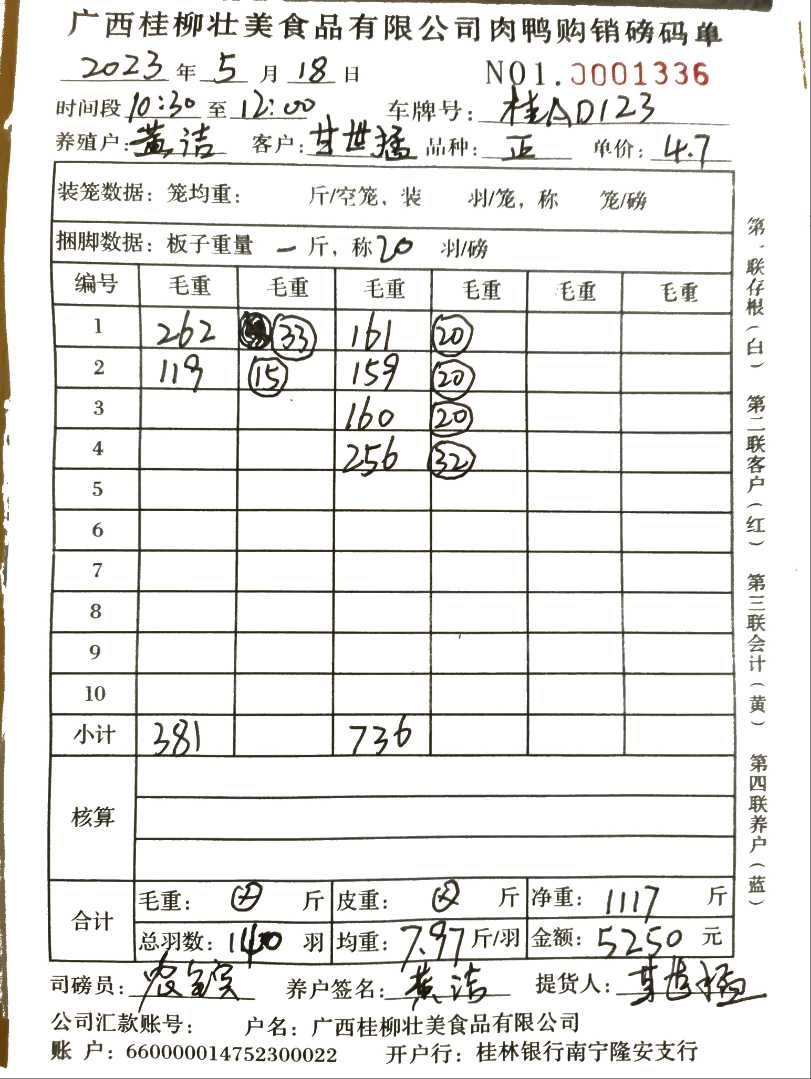 广西桂柳壮美食品有限公司肉鸭购销磅码单
2023 年 5 月 18 日 NO1.0001336
时间段 10:30 至 12:00 车牌号: 桂AD123
养殖户: 黄洁 客户: 甘世猛 品种: 正 单价: 4.7
装笼数据: 笼均重: 斤/空笼, 装 羽/笼, 称 笼/磅
捆脚数据: 板子重量 一 斤, 称 20 羽/磅
编号 毛重 毛重 毛重 毛重 毛重 毛重
1 262 33 161 20
2 119 15 159 20
3 160 20
4 256 32
5
6
7
8
9
10
小计 381 736
核算
合计
毛重: 斤 皮重: 斤 净重: 1117 斤
总羽数: 140 羽 均重: 7.97 斤/羽 金额: 5250 元
司磅员: 养户签名: 黄洁 提货人: 甘世猛
公司汇款账号: 户名: 广西桂柳壮美食品有限公司
账 户: 660000014752300022 开户行: 桂林银行南宁隆安支行
第一联存根(白) 第二联客户(红) 第三联会计(黄) 第四联养户(蓝)